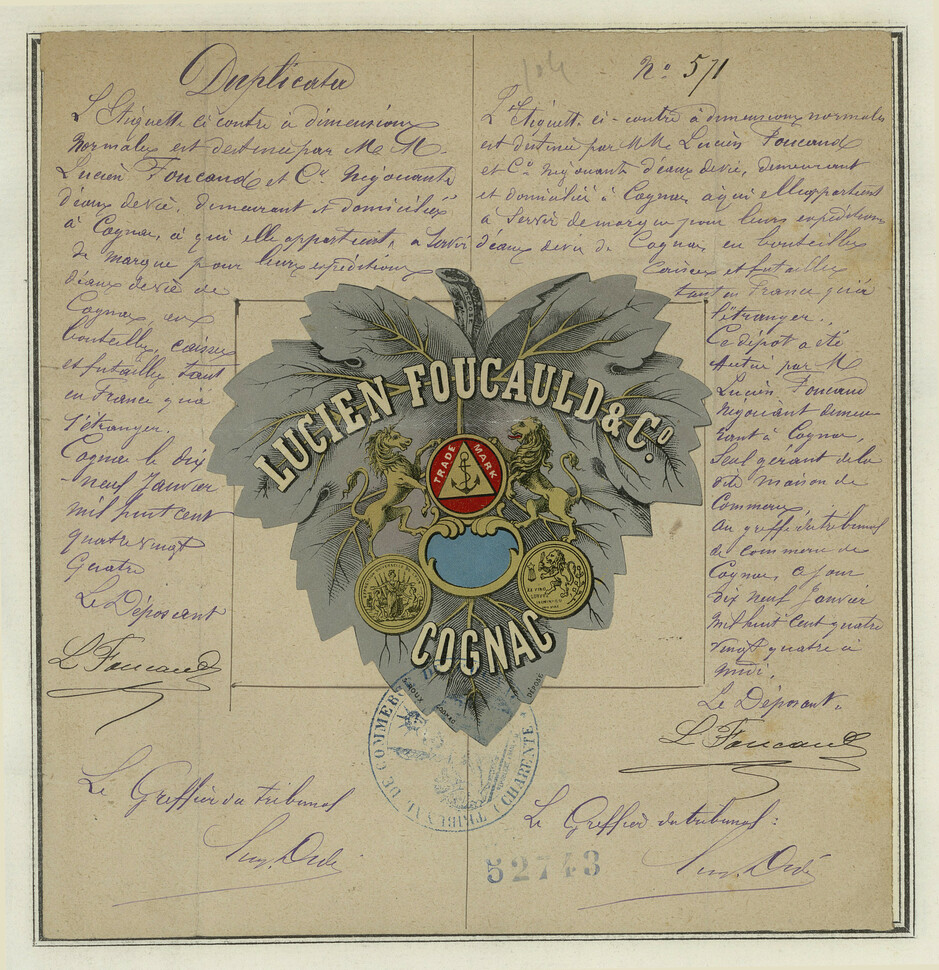 Duplicata
L'Etiquette ci contre à dimensions
Normales est destinée par M M.
Lucien Foucaud et Cie Négociants
d'eaux de vie, demeurant et domiciliés
à Cognac, à qui elle appartient, à Servir
de marque pour leurs expéditions
d'eaux de vie de
Cognac, en
bouteilles, caisses
et futailles tant
en France qu'à
l'étranger.
Cognac le dix
neuf Janvier
mil huit cent
quatre vingt
Quatre
Le Déposant
L Foucaud
Le Greffier du tribunal
104
No 571
L'Etiquette ci-contre à dimensions normales
est destinée par MM. Lucien Foucaud
et Cie Négociants d'eaux de vie, demeurant
et domiciliés à Cognac, à qui elle appartient
à Servir de marque pour leurs expéditions
d'eaux de vie de Cognac en bouteilles
caisses et futailles
tant en France qu'à
l'étranger.
Ce dépôt a été
par M
Lucien Foucaud
Négociant demeu-
rant à Cognac,
Seul gérant de la
dite maison de
Commerce,
Au greffe du tribunal
de commerce de
Cognac, ce jour
dix neuf Janvier
mil huit cent quatre
vingt quatre à
midi.
Le Déposant.
L Foucaud
Le Greffier du tribunal:
DÉPOSÉ
LUCIEN FOUCAULD & Co.
TRADE MARK
COGNAC
COGNAC
DÉPOSÉ
TRIBUNAL DE COMMERCE
(CHARENTE)
52743